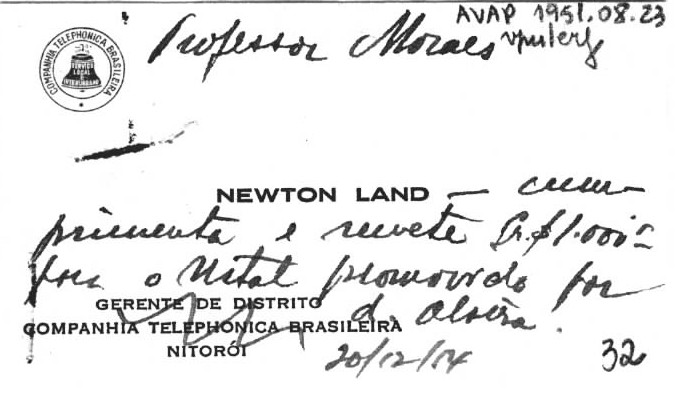 AVAP 1951.08.23
Professor Moraes
COMPANHIA TELEPHONICA BRASILEIRA
SERVIÇO LOCAL E INTERURBANO
NEWTON LAND — cum-
primenta e remete Cr.$1.000,00
para o Natal promovido por
d. Alzira.
GERENTE DE DISTRITO
COMPANHIA TELEPHONICA BRASILEIRA
NITORÓI
20/12/54
32